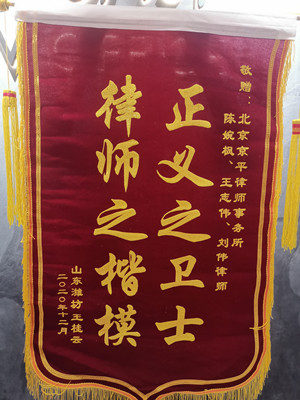 敬赠：北京京平律师事务所
陈婉枫、王志伟、刘伟律师
正义之卫士
律师之楷模
山东潍坊王桂云
二〇二〇年十二月